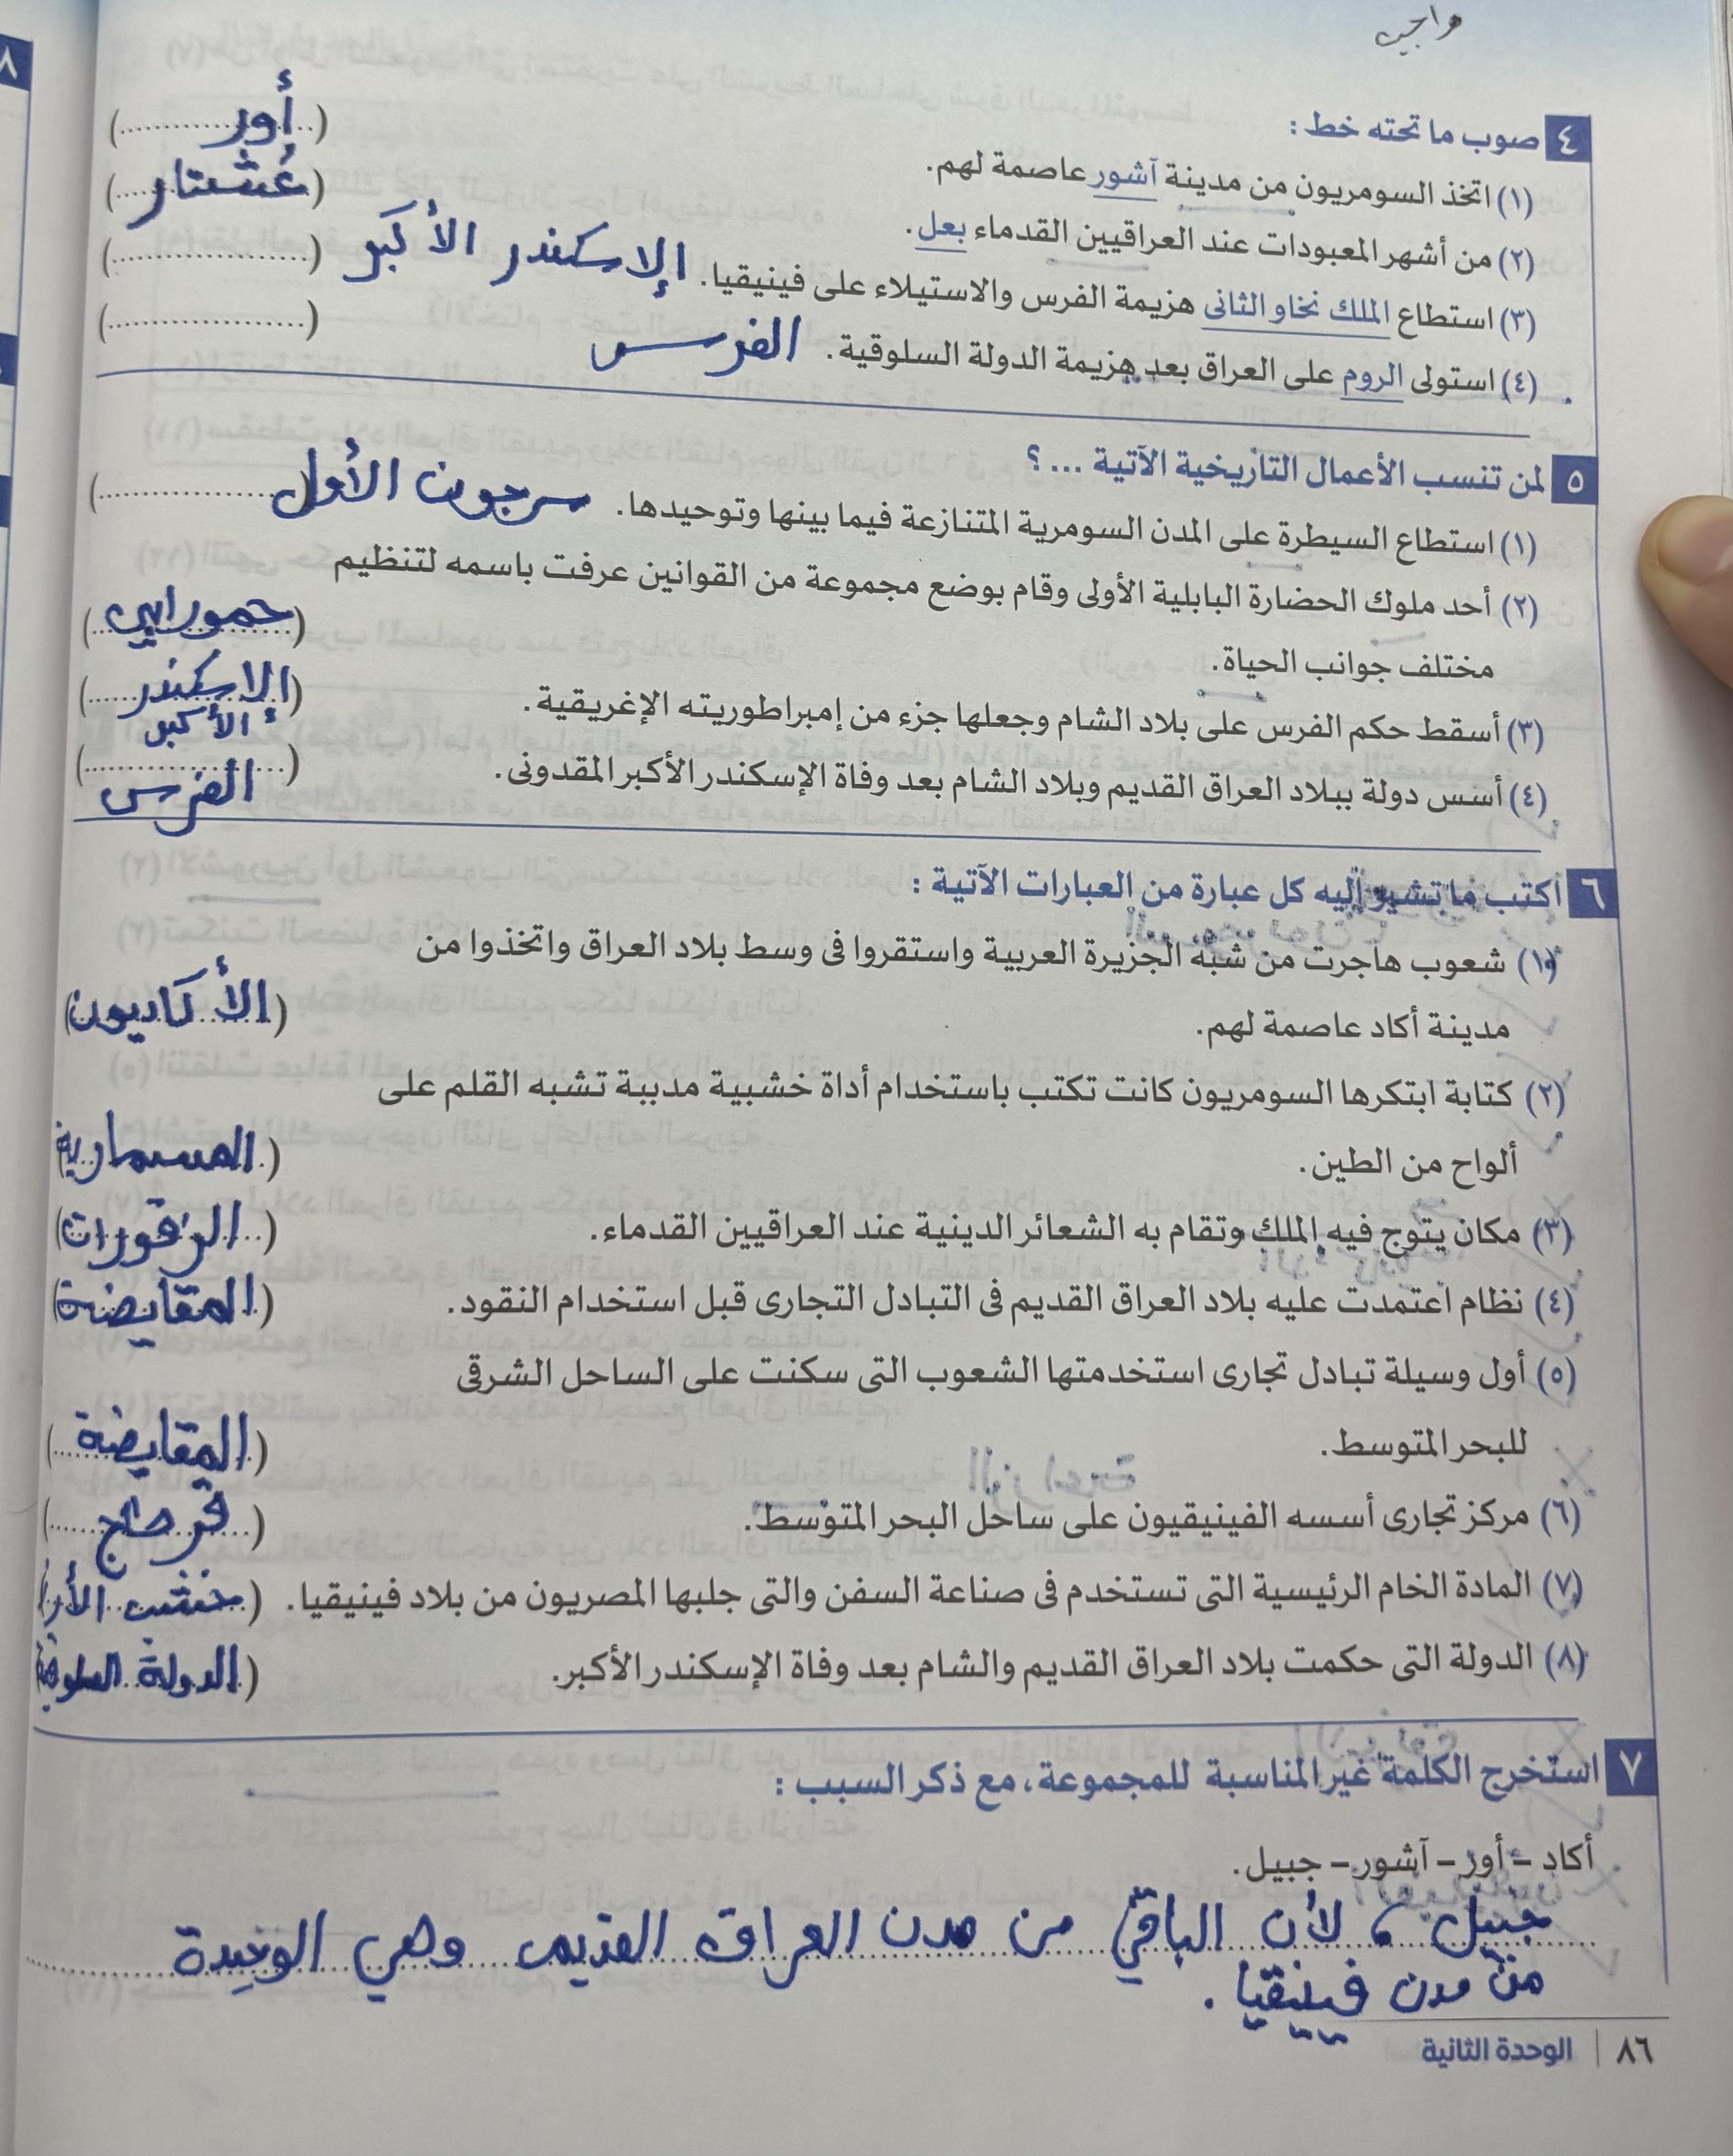 واجب
٤ صوب ما تحته خط :
(١) اتخذ السومريون من مدينة آشور عاصمة لهم. (أور)
(٢) من أشهر المعبودات عند العراقيين القدماء بعل. (عُشتار)
(٣) استطاع الملك نخاو الثانى هزيمة الفرس والاستيلاء على فينيقيا. الإسكندر الأكبر (..............)
(٤) استولى الروم على العراق بعد هزيمة الدولة السلوقية. الفرس (..............)
٥ لمن تنسب الأعمال التاريخية الآتية ...؟
(١) استطاع السيطرة على المدن السومرية المتنازعة فيما بينها وتوحيدها. سرجون الأول (..............)
(٢) أحد ملوك الحضارة البابلية الأولى وقام بوضع مجموعة من القوانين عرفت باسمه لتنظيم
مختلف جوانب الحياة. (حمورابي)
(٣) أسقط حكم الفرس على بلاد الشام وجعلها جزء من إمبراطوريته الإغريقية. (الاسكندر
الأكبر)
(٤) أسس دولة ببلاد العراق القديم وبلاد الشام بعد وفاة الإسكندر الأكبر المقدونى. (..............)
الفرس
٦ اكتب ما تشير إليه كل عبارة من العبارات الآتية :
(١) شعوب هاجرت من شبه الجزيرة العربية واستقروا فى وسط بلاد العراق واتخذوا من
مدينة أكاد عاصمة لهم. (الأكاديون)
(٢) كتابة ابتكرها السومريون كانت تكتب باستخدام أداة خشبية مدببة تشبه القلم على
ألواح من الطين. (المسمارية)
(٣) مكان يتوج فيه الملك وتقام به الشعائر الدينية عند العراقيين القدماء. (الزقورات)
(٤) نظام اعتمدت عليه بلاد العراق القديم فى التبادل التجارى قبل استخدام النقود. (المقايضة)
(٥) أول وسيلة تبادل تجارى استخدمتها الشعوب التى سكنت على الساحل الشرقى
للبحر المتوسط. (المقايضة)
(٦) مركز تجارى أسسه الفينيقيون على ساحل البحر المتوسط. (قرطاج)
(٧) المادة الخام الرئيسية التى تستخدم فى صناعة السفن والتى جلبها المصريون من بلاد فينيقيا. (خشب الأرز)
(٨) الدولة التى حكمت بلاد العراق القديم والشام بعد وفاة الإسكندر الأكبر. (الدولة السلوقية)
٧ استخرج الكلمة غير المناسبة للمجموعة، مع ذكر السبب :
أكاد – أور – آشور – جبيل.
جبيل ، لأن الباقي من مدن العراق القديم وهي الوحيدة
من مدن فينيقيا .
٨٦ | الوحدة الثانية